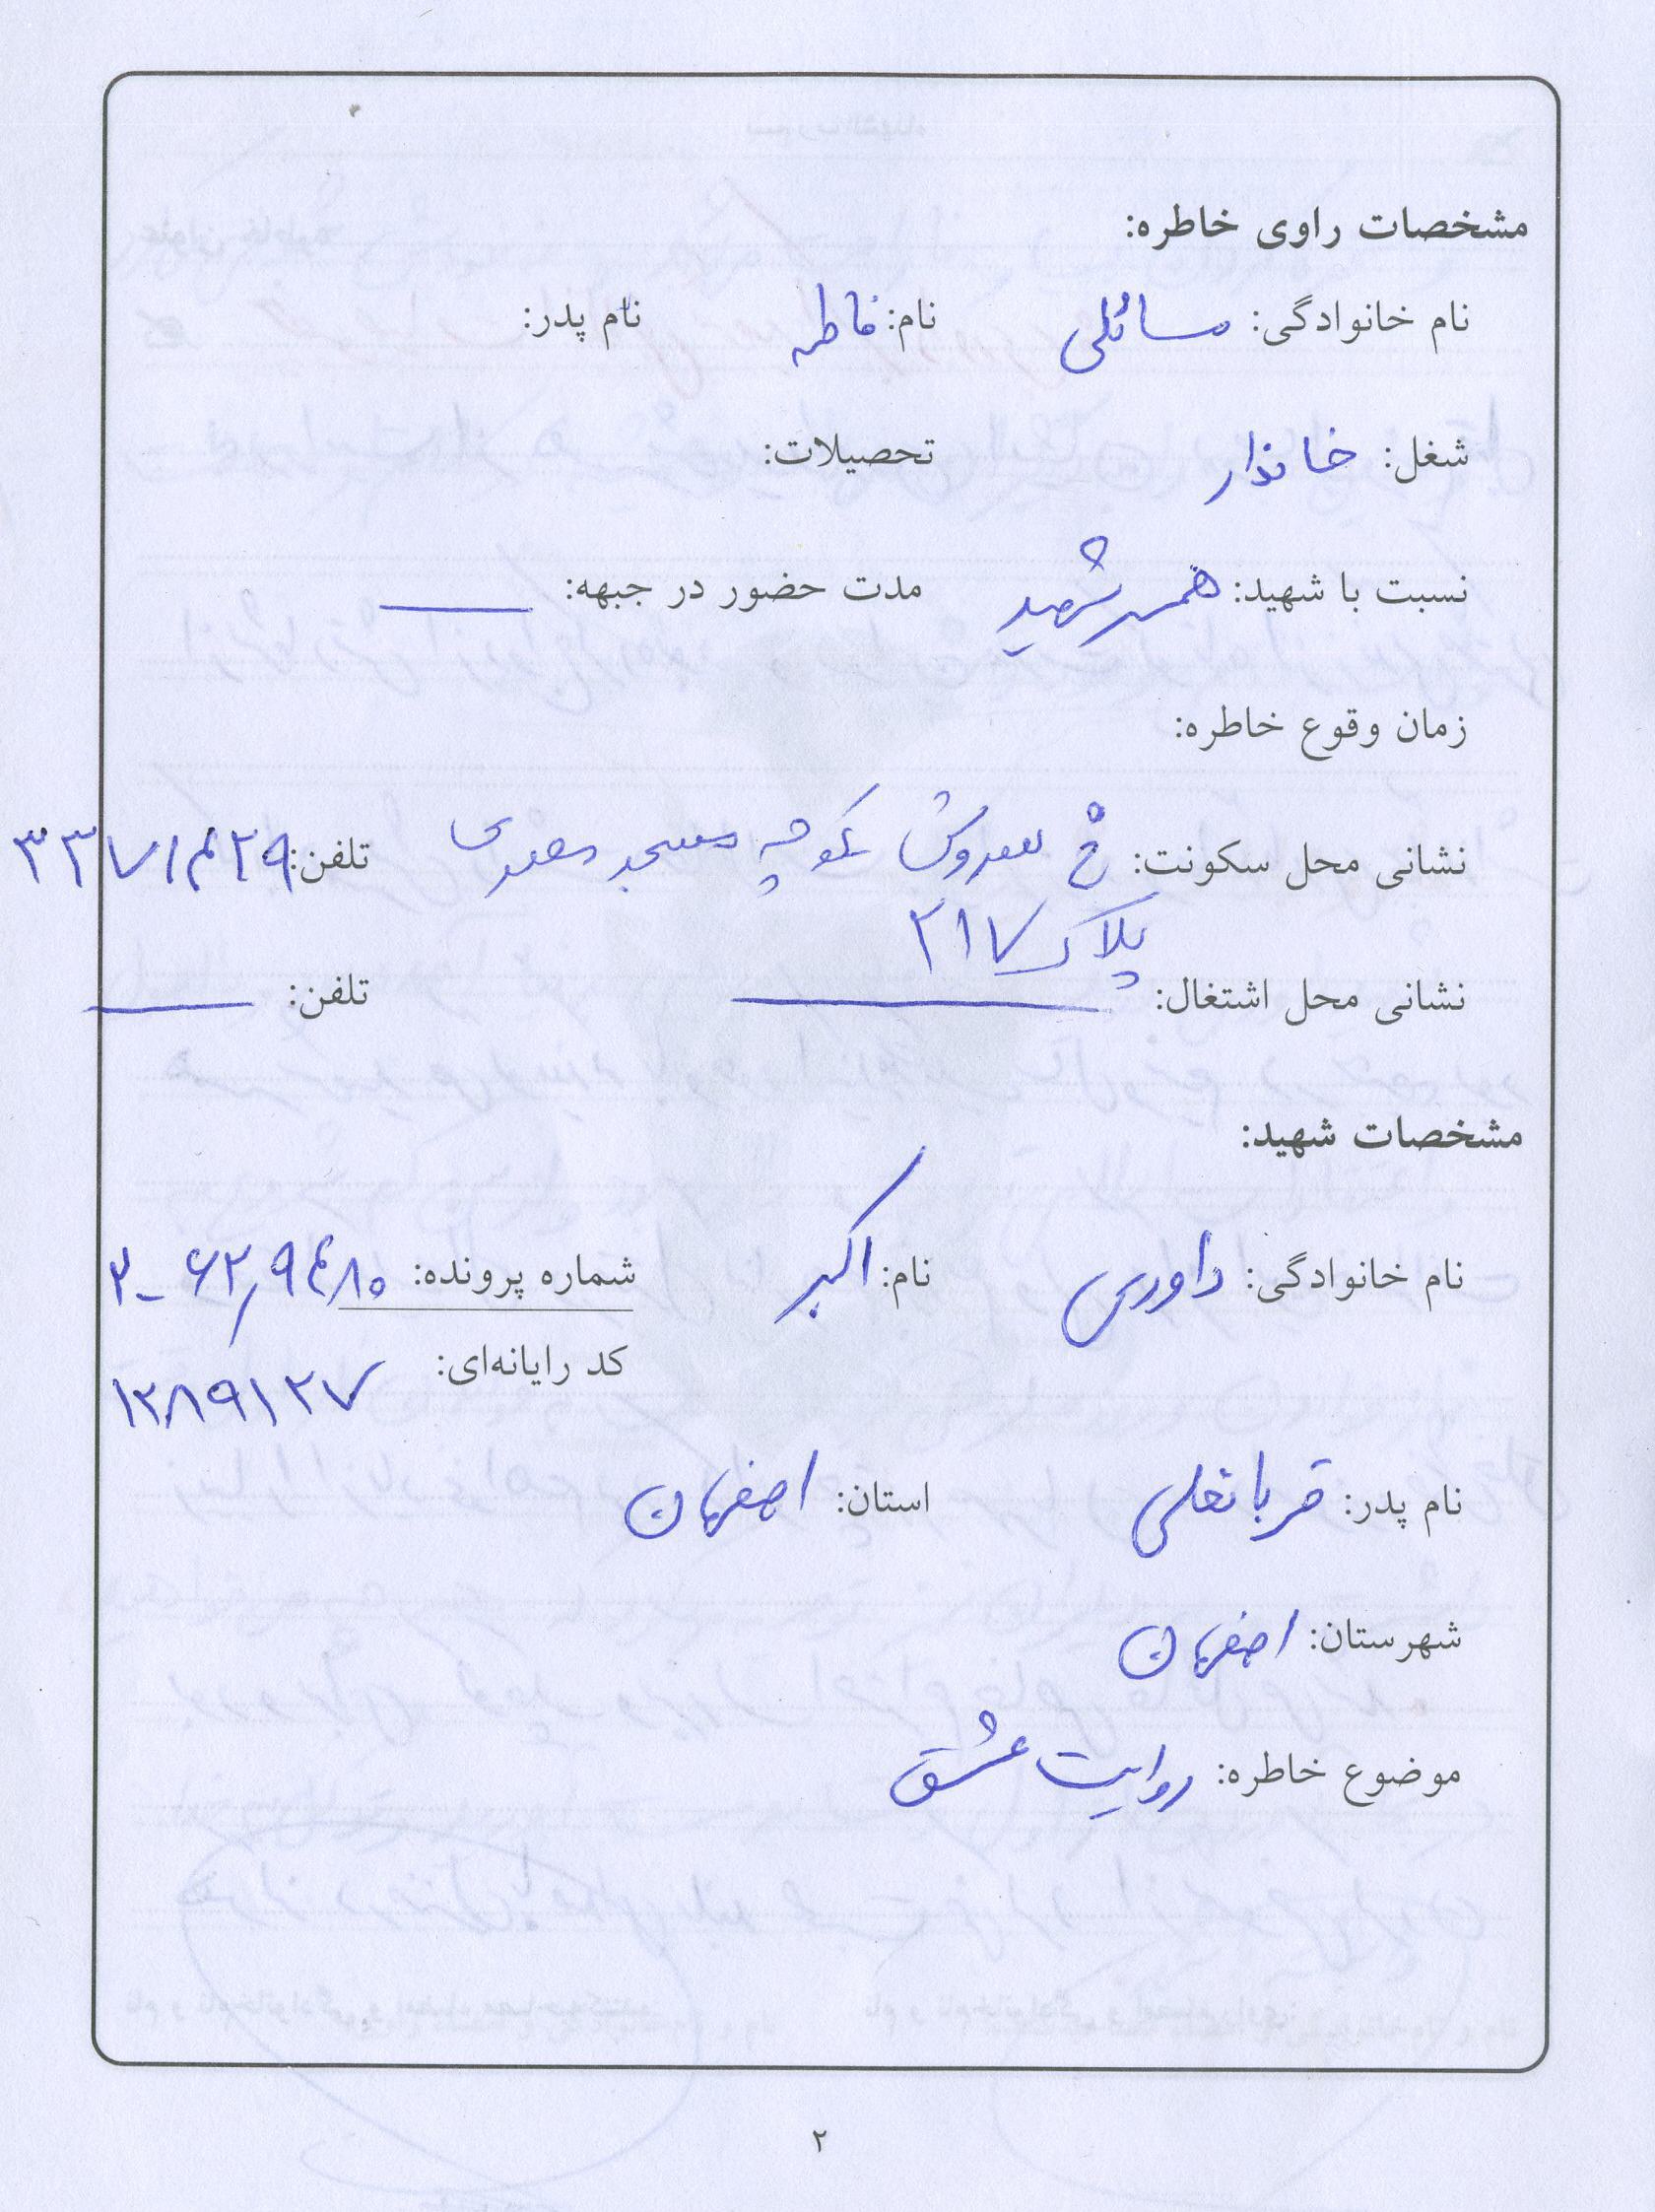 مشخصات راوی خاطره:
نام خانوادگی: مسائلی نام: فاطمه نام پدر:
شغل: خانه‌دار تحصیلات:
نسبت با شهید: همسر شهید مدت حضور در جبهه: ــــــ
زمان وقوع خاطره:
نشانی محل سکونت: خ سروش کوچه مسجد صفدری تلفن: ۳۳۷۱۴۲۹
پلاک ۲۱۷
نشانی محل اشتغال: ــــــ تلفن: ــــــ
مشخصات شهید:
نام خانوادگی: داوری نام: اکبر شماره پرونده: ۲-۶۲٫۹۴۸۰
کد رایانه‌ای: ۱۲۸۹۱۲۷
نام پدر: قربانعلی استان: اصفهان
شهرستان: اصفهان
موضوع خاطره: روایت عشق
۲